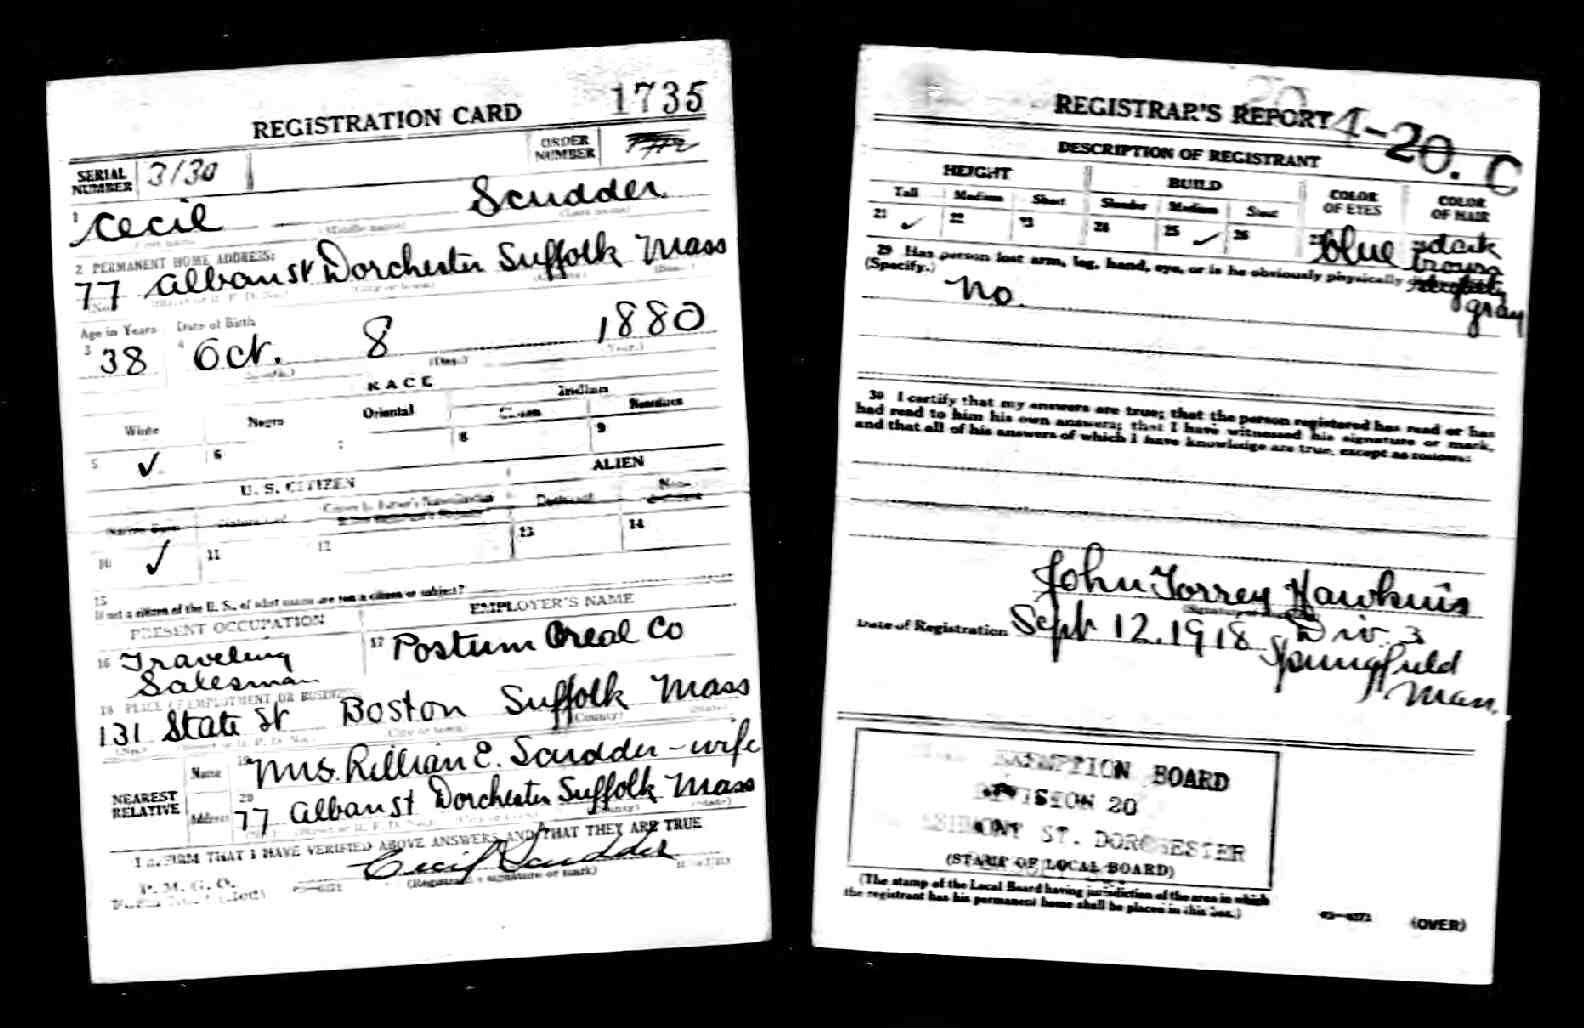 REGISTRATION CARD 1735
SERIAL NUMBER 3130 ORDER NUMBER
1 Cecil Scudder
(Middle name) (Last name)
2 PERMANENT HOME ADDRESS:
77 Alban st Dorchester Suffolk Mass
Age in Years Date of Birth
3 38 4 Oct. 8 1880
(Day.) (Year.)
RACE
White Negro Oriental Indian
Citizen Noncitizen
5 ✓ 6 7 8 9
U. S. CITIZEN ALIEN
Native Born Naturalized Citizen by Father's Naturalization Declarant Non-declarant
10 ✓ 11 12 13 14
15
If not a citizen of the U. S., of what nation are you a citizen or subject?
PRESENT OCCUPATION EMPLOYER'S NAME
16 Traveling Salesman 17 Postum Cereal Co
18 PLACE OF EMPLOYMENT OR BUSINESS:
131 State St Boston Suffolk Mass
(No.) (City or town) (County) (State)
NEAREST RELATIVE Name 19 Mrs. Lillian E. Scudder - wife
Address 20 77 Alban st Dorchester Suffolk Mass
I AFFIRM THAT I HAVE VERIFIED ABOVE ANSWERS AND THAT THEY ARE TRUE
P. M. G. O.
Cecil Scudder
(Registrant's signature or mark)
REGISTRAR'S REPORT 1-20. C
DESCRIPTION OF REGISTRANT
HEIGHT BUILD COLOR OF EYES COLOR OF HAIR
Tall Medium Short Slender Medium Stout
21 ✓ 22 23 24 25 ✓ 26 blue dark brown slightly gray
29 Has person lost arm, leg, hand, eye, or is he obviously physically
(Specify.) No.
30 I certify that my answers are true; that the person registered has read or has
had read to him his own answers; that I have witnessed his signature or mark,
and that all of his answers of which I have knowledge are true, except as follows:
John Torrey Hawkins
Date of Registration Sept 12. 1918 Div. 3
Springfield
Mass.
EXEMPTION BOARD
DIVISION 20
ST. DORCHESTER
(STAMP OF LOCAL BOARD)
(The stamp of the Local Board having jurisdiction of the area in which
the registrant has his permanent home shall be placed in this box.)
03—6171 (OVER)